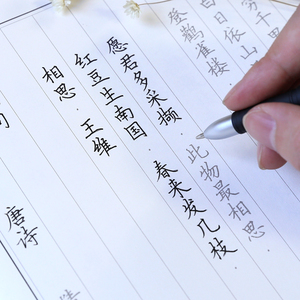 穷千里
白日依山
登鹳雀楼
愿君多采撷，此物最相思。
红豆生南国，春来发几枝。
相思·王维
唐诗